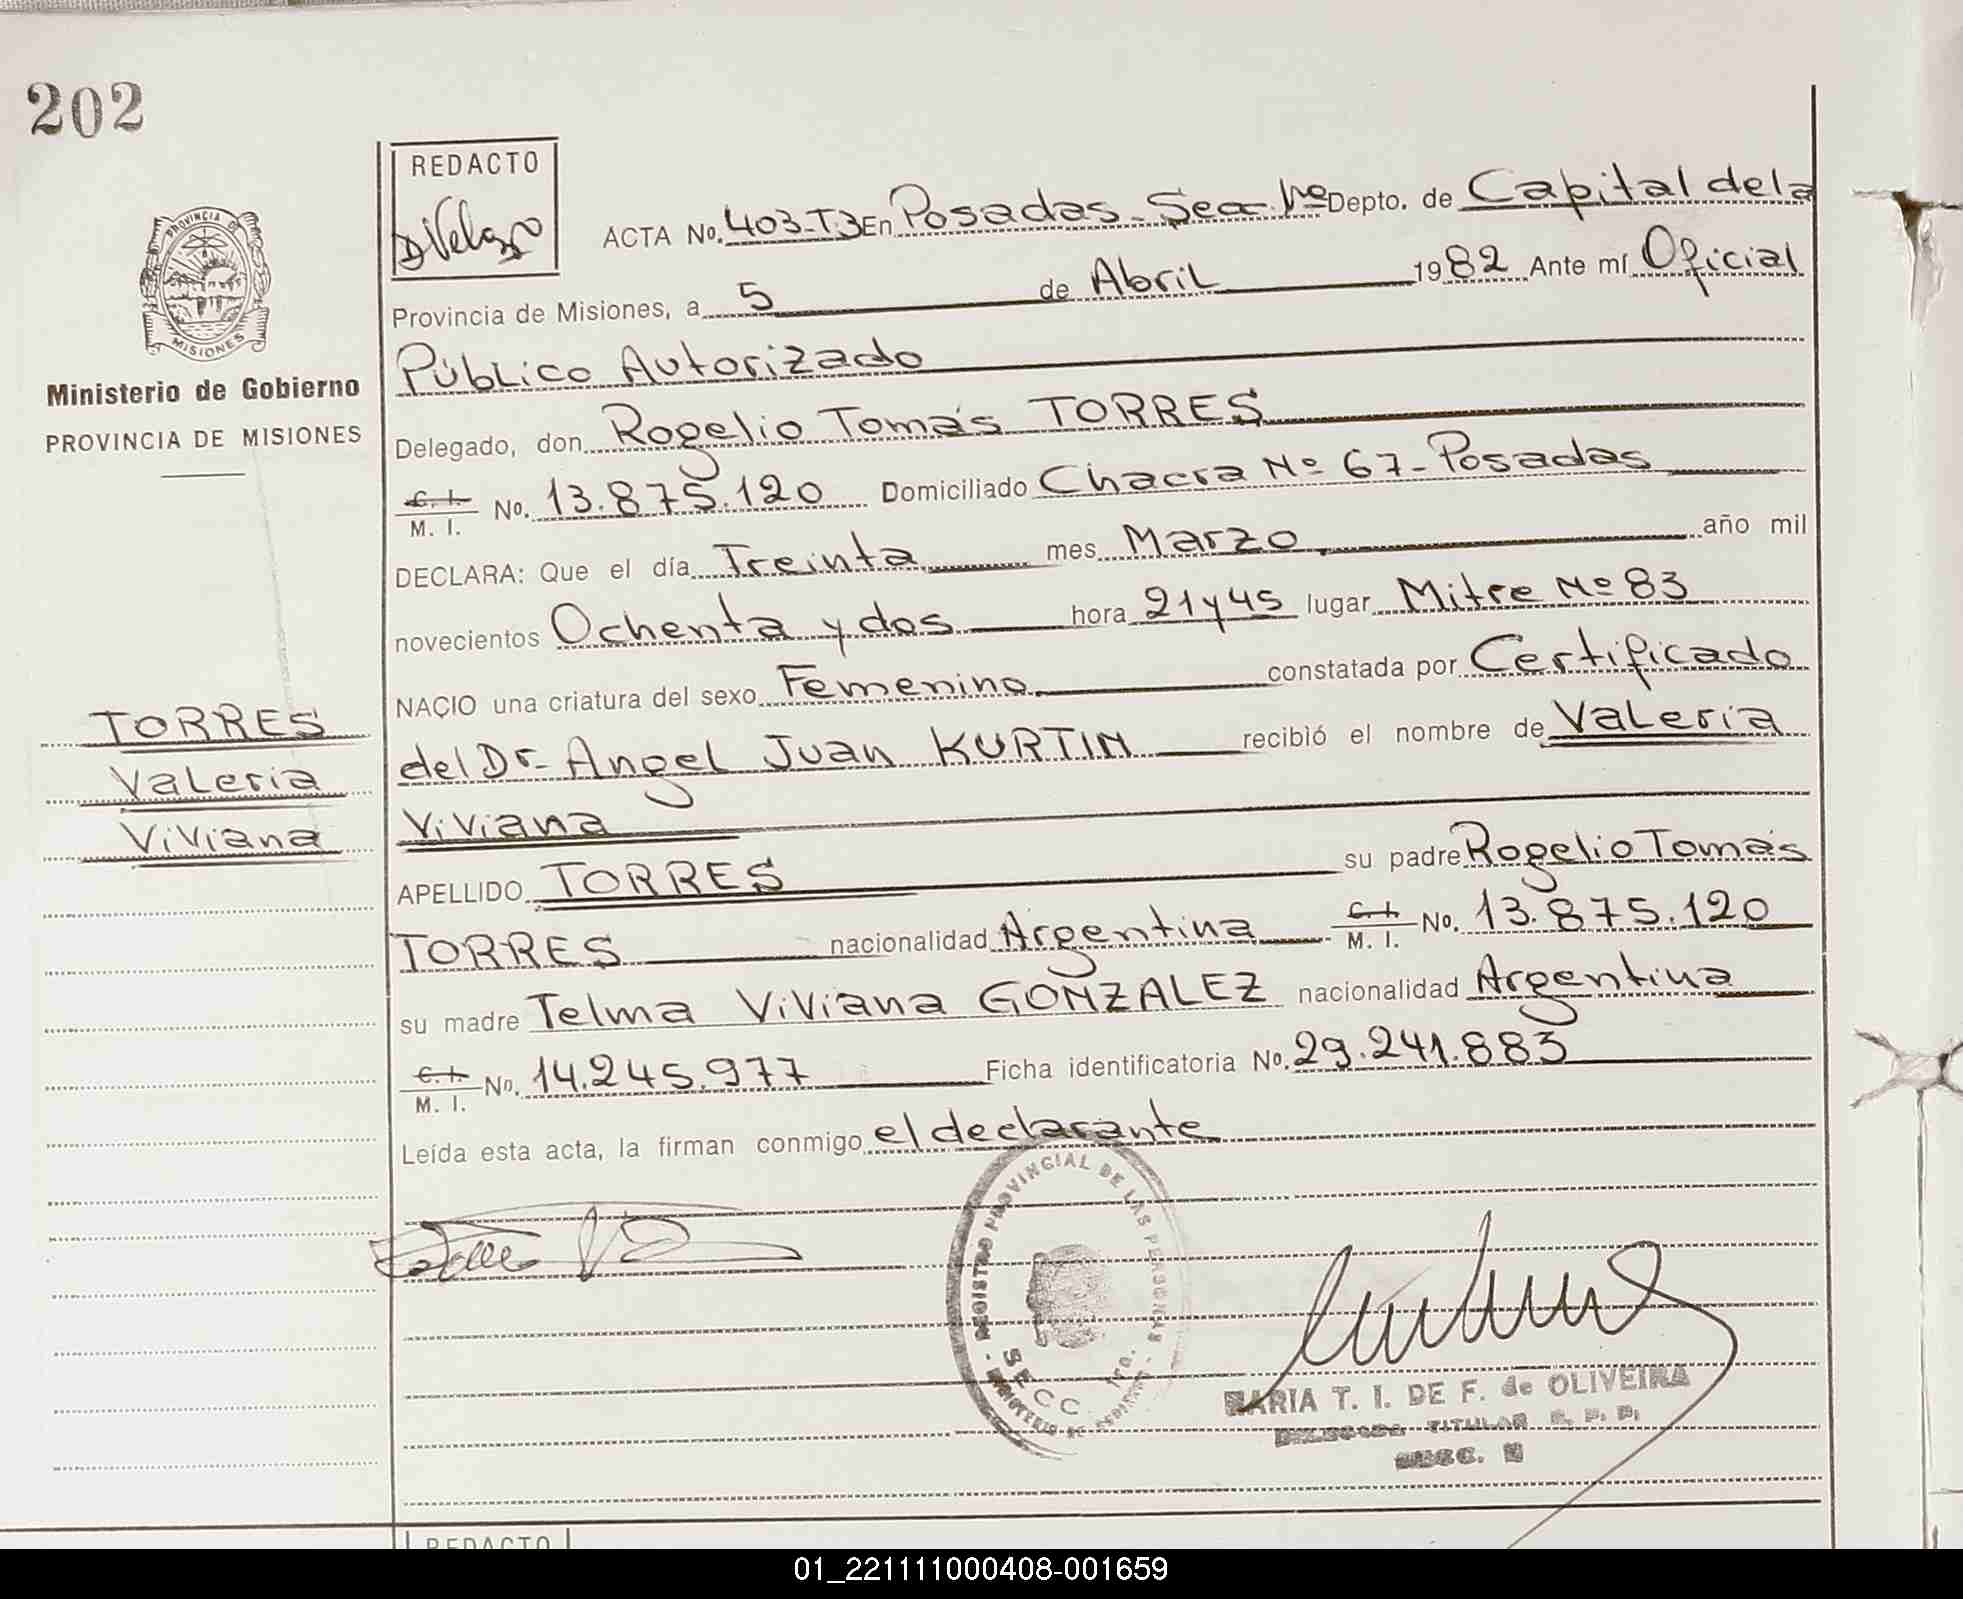 202
REDACTO
D. Velazco
PROVINCIA DE
MISIONES
Ministerio de Gobierno
PROVINCIA DE MISIONES
ACTA No. 403-T3 En Posadas - Secc. 1º Depto. de Capital de la
Provincia de Misiones, a 5 de Abril 1982 Ante mí Oficial
Público Autorizado
Delegado, don Rogelio Tomás TORRES
C. I. M. I. No. 13.875.120 Domiciliado Chacra Nº 67 - Posadas
DECLARA: Que el día Treinta mes Marzo año mil
novecientos Ochenta y dos hora 21 y 45 lugar Mitre Nº 83
NACIO una criatura del sexo Femenino constatada por Certificado
TORRES
Valeria
Viviana
del Dr. Angel Juan KURTIN recibió el nombre de Valeria
Viviana
APELLIDO TORRES su padre Rogelio Tomás
TORRES nacionalidad Argentina C. I. M. I. No. 13.875.120
su madre Telma Viviana GONZALEZ nacionalidad Argentina
C. I. M. I. No. 14.245.977 Ficha identificatoria No. 29.241.883
Leída esta acta, la firman conmigo el declarante
REGISTRO PROVINCIAL DE LAS PERSONAS
SECC. 1ra.
MARIA T. I. DE F. de OLIVEIRA
TITULAR R. P. P.
SECC.
REDACTO
01_221111000408-001659